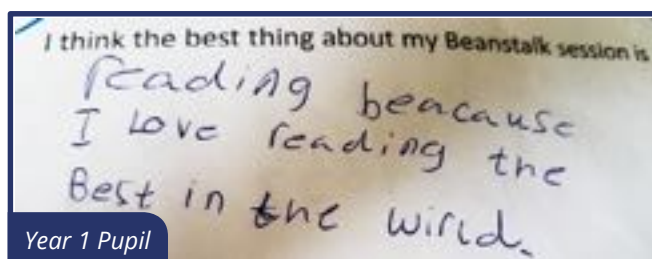 I think the best thing about my Beanstalk session is
reading beacause
I Love reading the
Best in the wirld.
Year 1 Pupil